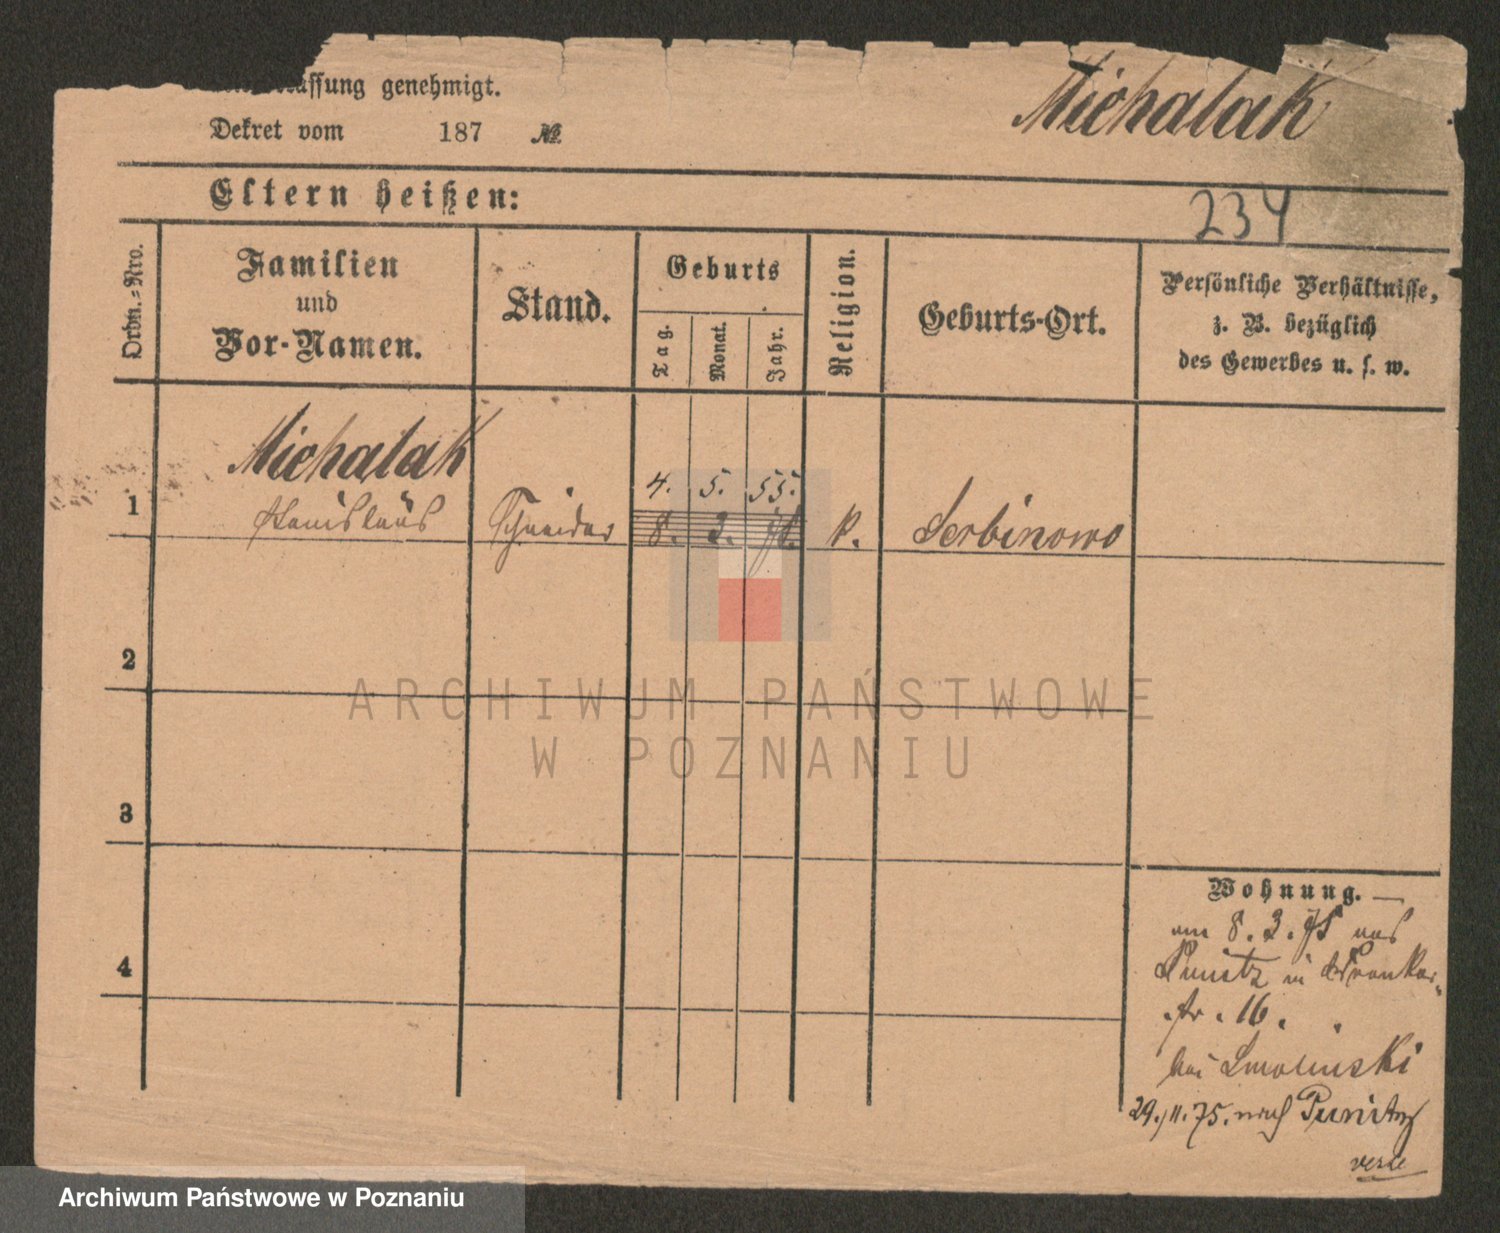 assung genehmigt.
Dekret vom 187 №
Michalak
Eltern heißen:
234
Ordn.=Nro.
Familien
und
Vor-Namen.
Stand.
Geburts
Tag.
Monat.
Jahr.
Religion.
Geburts-Ort.
Persönliche Verhältnisse,
z. B. bezüglich
des Gewerbes u. s. w.
Michalak
1 Stanislaus Schneider 4. 5. 55. K. Serbinowo
8. 3.
2
ARCHIWUM PAŃSTWOWE
W POZNANIU
3
Wohnung.
8. 3. 75 aus
4
Punitz in
str. 16.
bei Smolinski
29./11.75. nach Punitz
Archiwum Państwowe w Poznaniu